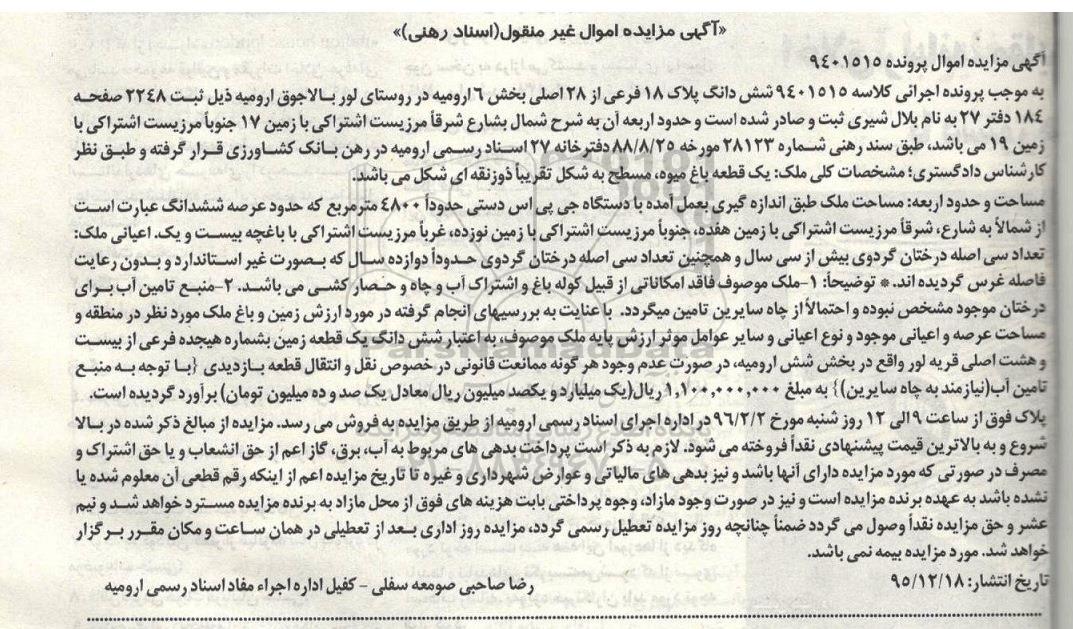 «آگهی مزایده اموال غیر منقول(اسناد رهنی)»
آگهی مزایده اموال پرونده ۹٤۰۱۵۱۵
به موجب پرونده اجرائی کلاسه ۹٤۰۱۵۱۵ شش دانگ پلاک ۱۸ فرعی از ۲۸ اصلی بخش ٦ ارومیه در روستای لور بالاجوق ارومیه ذیل ثبت ۲۲٤۸ صفحه
۱۸٤ دفتر ۲۷ به نام بلال شیری ثبت و صادر شده است و حدود اربعه آن به شرح شمال بشارع شرقاً مرزیست اشتراکی با زمین ۱۷ جنوباً مرزیست اشتراکی با
زمین ۱۹ می باشد، طبق سند رهنی شماره ۲۸۱۲۳ مورخه ۸۸/۸/۲۵ دفترخانه ۲۷ اسناد رسمی ارومیه در رهن بانک کشاورزی قرار گرفته و طبق نظر
کارشناس دادگستری؛ مشخصات کلی ملک: یک قطعه باغ میوه، مسطح به شکل تقریباً ذوزنقه ای شکل می باشد.
مساحت و حدود اربعه: مساحت ملک طبق اندازه گیری بعمل آمده با دستگاه جی پی اس دستی حدوداً ٤۸۰۰ مترمربع که حدود عرصه ششدانگ عبارت است
از شمالاً به شارع، شرقاً مرزیست اشتراکی با زمین هفده، جنوباً مرزیست اشتراکی با زمین نوزده، غرباً مرزیست اشتراکی با باغچه بیست و یک. اعیانی ملک:
تعداد سی اصله درختان گردوی بیش از سی سال و همچنین تعداد سی اصله درختان گردوی حدوداً دوازده سال که بصورت غیر استاندارد و بدون رعایت
فاصله غرس گردیده اند. * توضیحاً: ۱-ملک موصوف فاقد امکاناتی از قبیل کوله باغ و اشتراک آب و چاه و حصار کشی می باشد. ۲-منبع تامین آب برای
درختان موجود مشخص نبوده و احتمالاً از چاه سایرین تامین میگردد. با عنایت به بررسیهای انجام گرفته در مورد ارزش زمین و باغ ملک مورد نظر در منطقه و
مساحت عرصه و اعیانی موجود و نوع اعیانی و سایر عوامل موثر ارزش پایه ملک موصوف، به اعتبار شش دانگ یک قطعه زمین بشماره هیجده فرعی از بیست
و هشت اصلی قریه لور واقع در بخش شش ارومیه، در صورت عدم وجود هر گونه ممانعت قانونی در خصوص نقل و انتقال قطعه بازدیدی {با توجه به منبع
تامین آب(نیازمند به چاه سایرین)} به مبلغ ۱,۱۰۰,۰۰۰,۰۰۰ ریال(یک میلیارد و یکصد میلیون ریال معادل یک صد و ده میلیون تومان) برآورد گردیده است.
پلاک فوق از ساعت ۹ الی ۱۲ روز شنبه مورخ ۹٦/۲/۲ در اداره اجرای اسناد رسمی ارومیه از طریق مزایده به فروش می رسد. مزایده از مبالغ ذکر شده در بالا
شروع و به بالاترین قیمت پیشنهادی نقداً فروخته می شود. لازم به ذکر است پرداخت بدهی های مربوط به آب، برق، گاز اعم از حق انشعاب و یا حق اشتراک و
مصرف در صورتی که مورد مزایده دارای آنها باشد و نیز بدهی های مالیاتی و عوارض شهرداری و غیره تا تاریخ مزایده اعم از اینکه رقم قطعی آن معلوم شده یا
نشده باشد به عهده برنده مزایده است و نیز در صورت وجود مازاد، وجوه پرداختی بابت هزینه های فوق از محل مازاد به برنده مزایده مسترد خواهد شد و نیم
عشر و حق مزایده نقداً وصول می گردد ضمناً چنانچه روز مزایده تعطیل رسمی گردد، مزایده روز اداری بعد از تعطیلی در همان ساعت و مکان مقرر برگزار
خواهد شد. مورد مزایده بیمه نمی باشد.
تاریخ انتشار: ۹۵/۱۲/۱۸
رضا صاحبی صومعه سفلی - کفیل اداره اجراء مفاد اسناد رسمی ارومیه